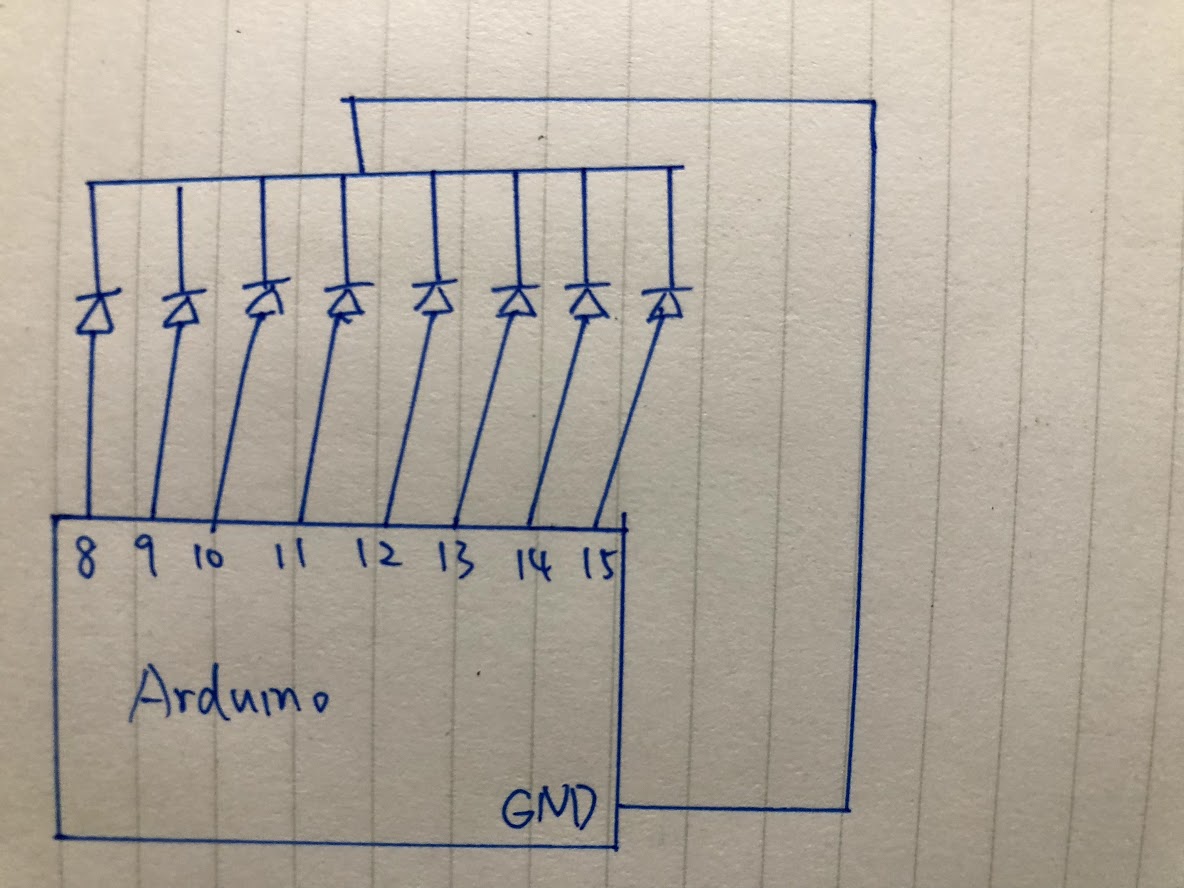 8 9 10 11 12 13 14 15
Arduino
GND